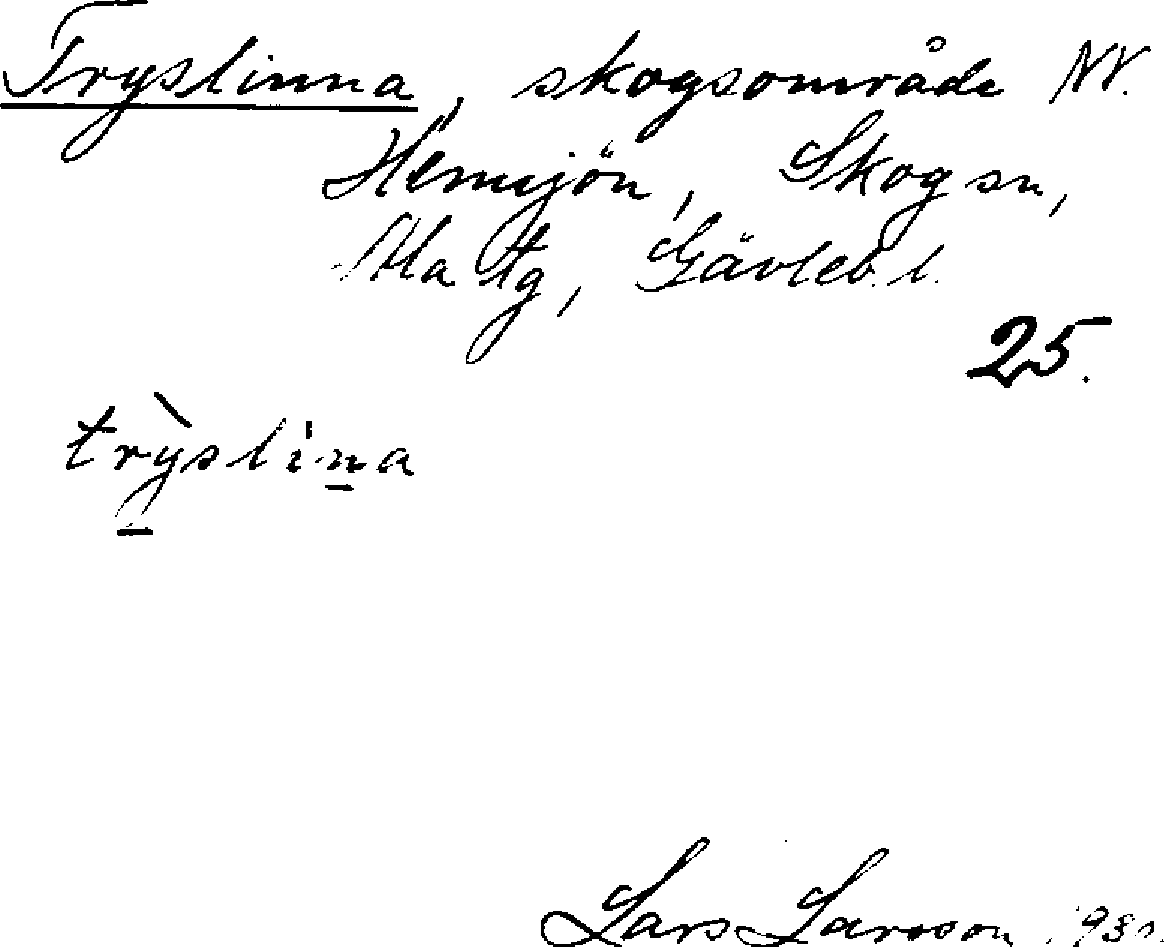 Tryslinna, skogsområde NV.
Hemsjön, Skog sn,
Ala tg, Gävleb. l.
25.
trỳslina
Lars Larsson